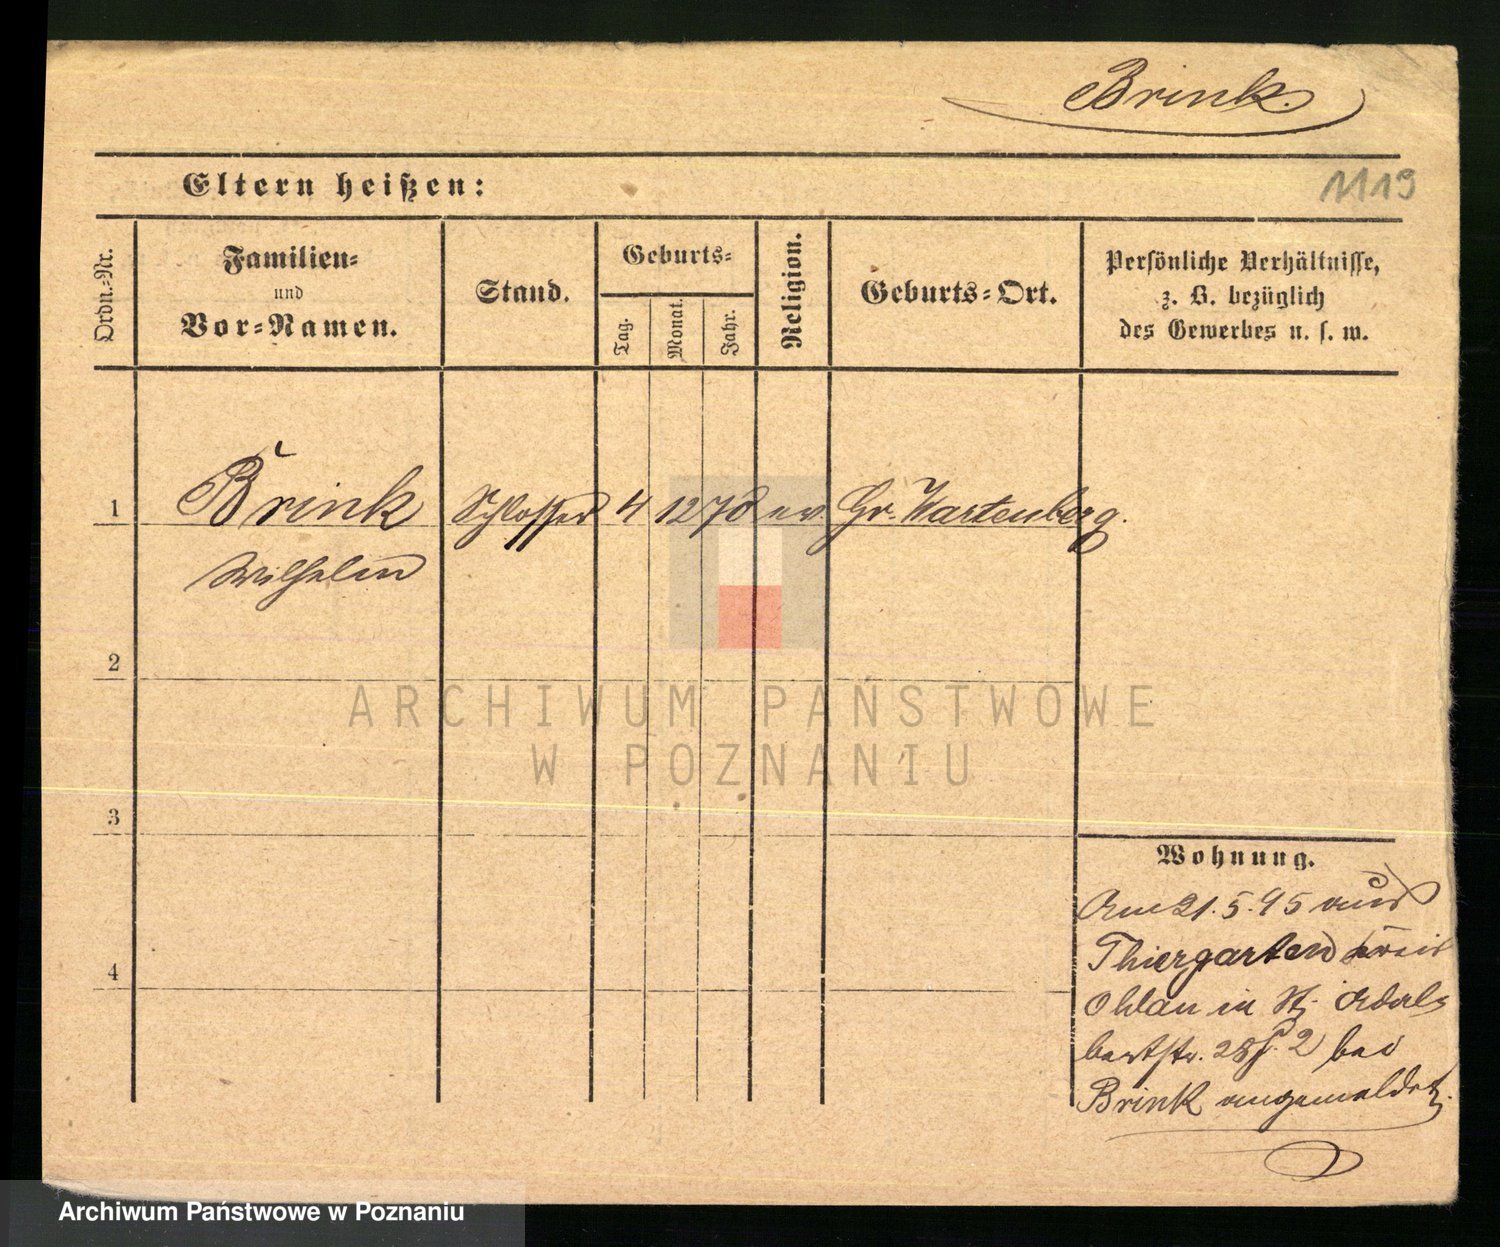 Brink.
1119
Eltern heißen:
Ordn.-Nr.
Familien-
und
Vor-Namen.
Stand.
Geburts-
Tag.
Monat.
Jahr.
Religion.
Geburts-Ort.
Persönliche Verhältnisse,
z. B. bezüglich
des Gewerbes u. s. w.
1
Brink Schlosser 4 12 78 ev. Gr. Wartenberg.
Wilhelm
2
ARCHIWUM PAŃSTWOWE
W POZNANIU
3
Wohnung.
Am 21.5.95 aus
Thiergarten Kreis
Ohlau in St. Adal-
bertstr. 28 2 bei
Brink angemeldet.
4
Archiwum Państwowe w Poznaniu